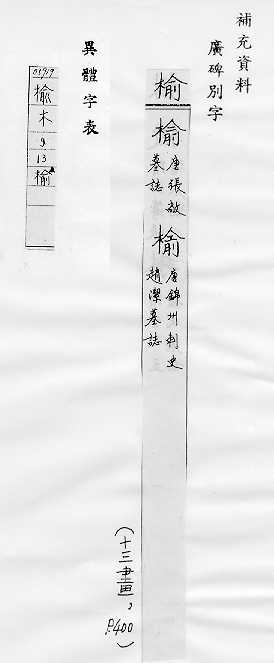 補充資料
廣碑別字
榆
榆 唐張敔墓誌
榆 唐錦州刺史趙潔墓誌
(十三畫，P.400)
異體字表
榆
木
9
13
榆